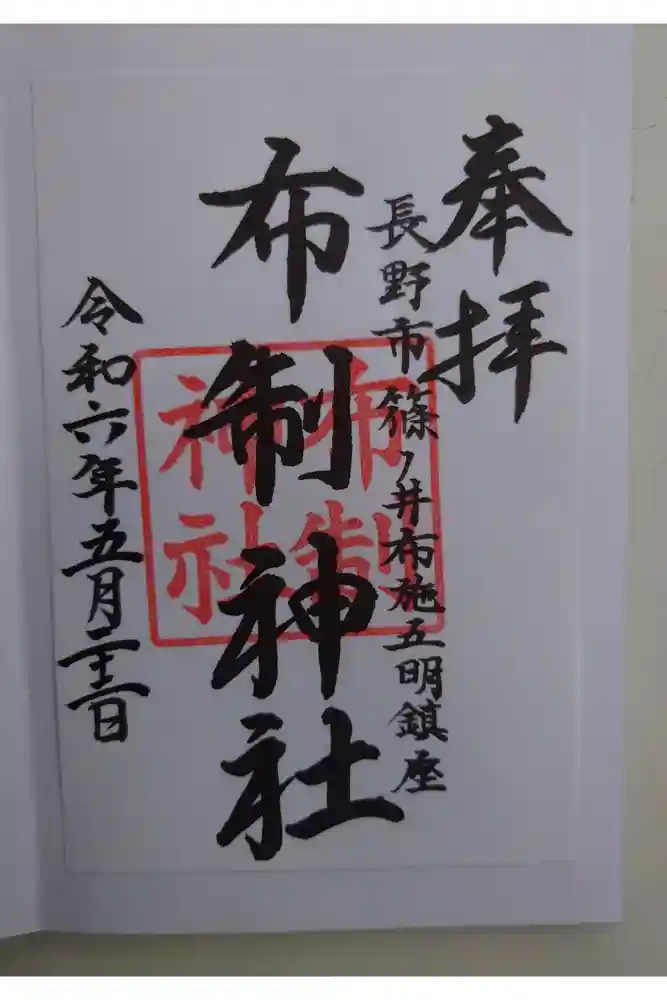 奉拝
長野市篠ノ井布施五明鎮座
布制神社
布制
神社
令和六年五月二十二日